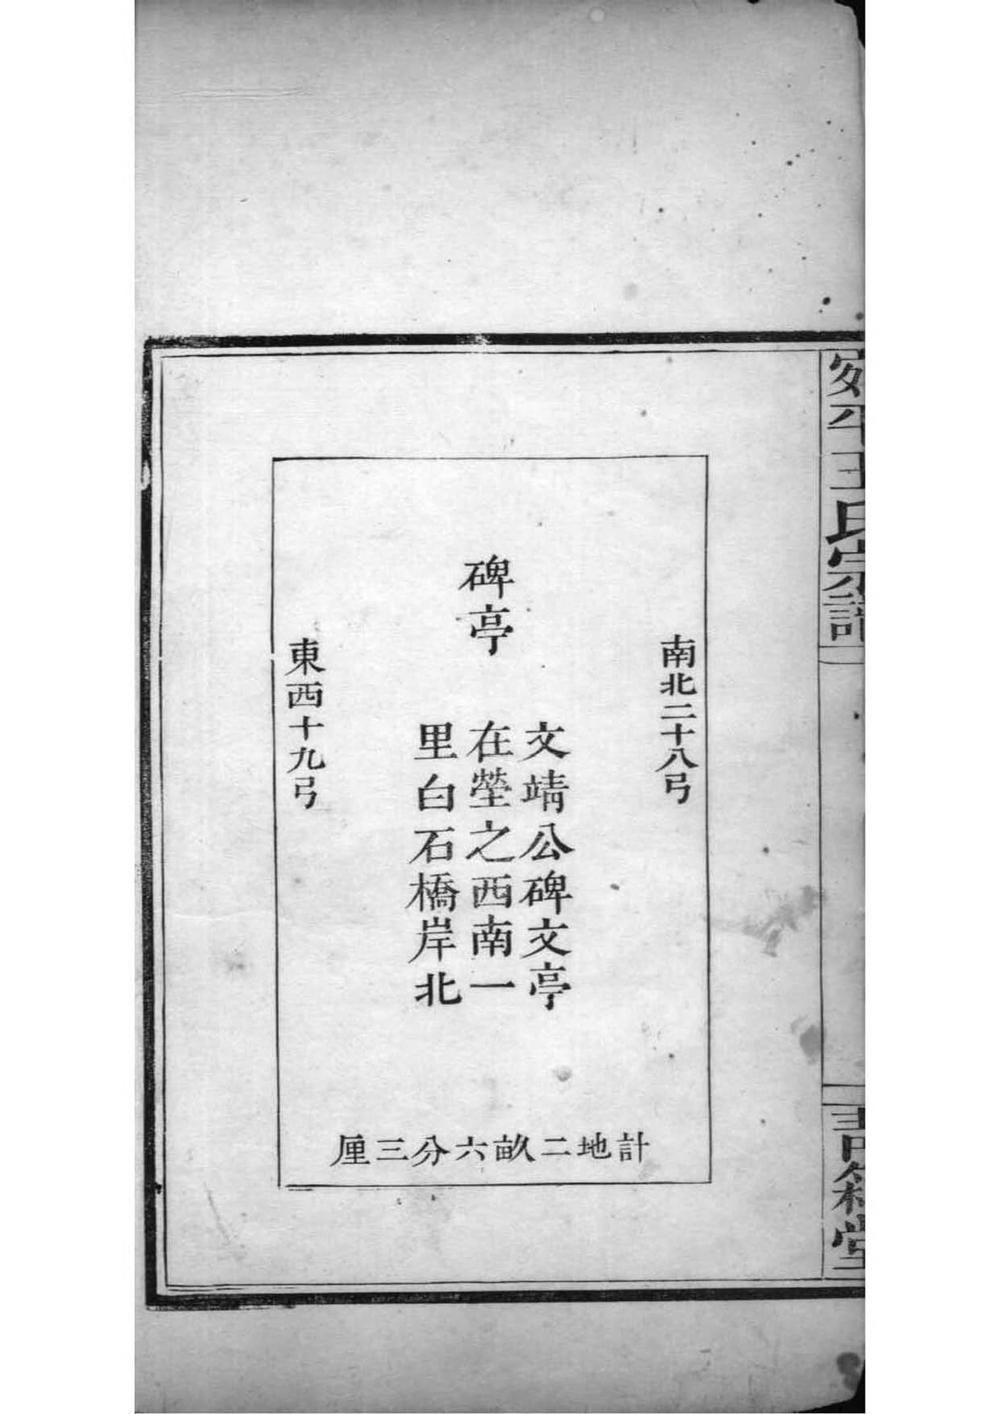 宛平王氏宗譜
南北二十八弓
碑亭
文靖公碑文亭
在塋之西南一
里白石橋岸北
東西十九弓
計地二畝六分三厘
青箱堂